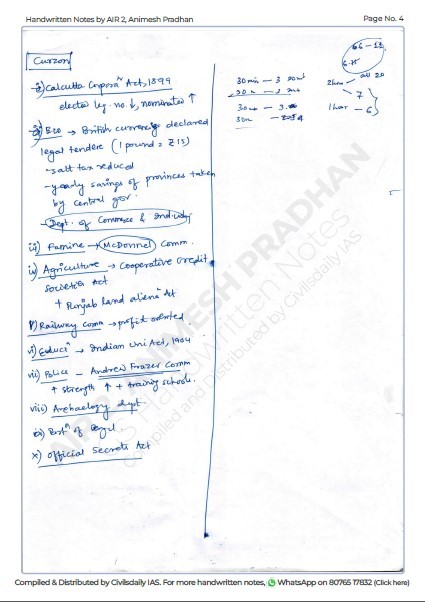 Handwritten Notes by AIR 2, Animesh Pradhan
Page No. 4
Curzon
i) Calcutta Corporaⁿ Act, 1899
elected leg. no. ↓, nominated ↑
ii) Eco → British currency declared
legal tendere (1 pound = ₹15)
- salt tax reduced
- yearly savings of provinces taken
by central gov.
- Dept. of Commerce & Industry
iii) Famine → McDonnel Comm.
iv) Agriculture → Cooperative Credit
Societies Act
+ Punjab land alienaⁿ Act
v) Railway Comm → profit oriented.
vi) Educⁿ → Indian Uni Act, 1904
vii) Police - Andrew Frazer Comm
+ strength ↑ + training schools.
viii) Archaelogy dept.
ix) Partⁿ of Bengal
x) Official Secrets Act
30 min - 3
2 hour
7
1 hour - 6
AIR 2 ANIMESH PRADHAN
Handwritten Notes
Compiled and Distributed by Civilsdaily IAS
Compiled & Distributed by Civilsdaily IAS. For more handwritten notes, WhatsApp on 80765 17832 (Click here)